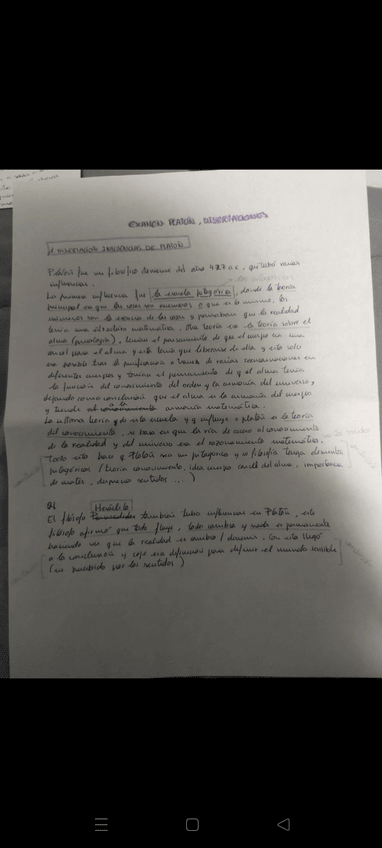 EXAMEN PLATÓN, DISERTACIONES
1ª DISERTACIÓN INFLUENCIAS DE PLATÓN
Platón fue un filósofo del año 427 a.c, que tuvo varias
influencias.
La primera influencia fue la escuela pitagórica, donde la teoría
principal es que las cosas son números o que es lo mismo, los
números son la esencia de las cosas y pensaban que la realidad
tenía una estructura matemática. Otra teoría es la teoría sobre el
alma (psicología), tenían el pensamiento de que el cuerpo era una
cárcel para el alma y esta tenía que liberarse de ella y esto solo
era posible tras la purificación a través de varias reencarnaciones en
diferentes cuerpos y tenían el pensamiento de q el alma tenía
la función del conocimiento del orden y la armonía del universo,
dejando como conclusión que el alma es la armonía del cuerpo
y tiende a la armonía matemática.
La última teoría q de esta escuela y q influye a platón es la teoría
del conocimiento, se basa en que la vía de acceso al conocimiento
de la realidad y del universo es el razonamiento matemático.
Todo esto hace q Platón sea un pitagórico y su filosofía tenga elementos
pitagóricos (teoría conocimiento, idea cuerpo cárcel del alma, importancia
de mates, desprecio sentidos ...)
El filósofo Heráclito también tuvo influencias en Platón, este
filósofo afirmó que todo fluye, todo cambia y nada es permanente
haciendo ver que la realidad es cambio / devenir. Con esto llegó
a la conclusión y cogió esa definición para definir el mundo sensible
(es percibido por los sentidos)